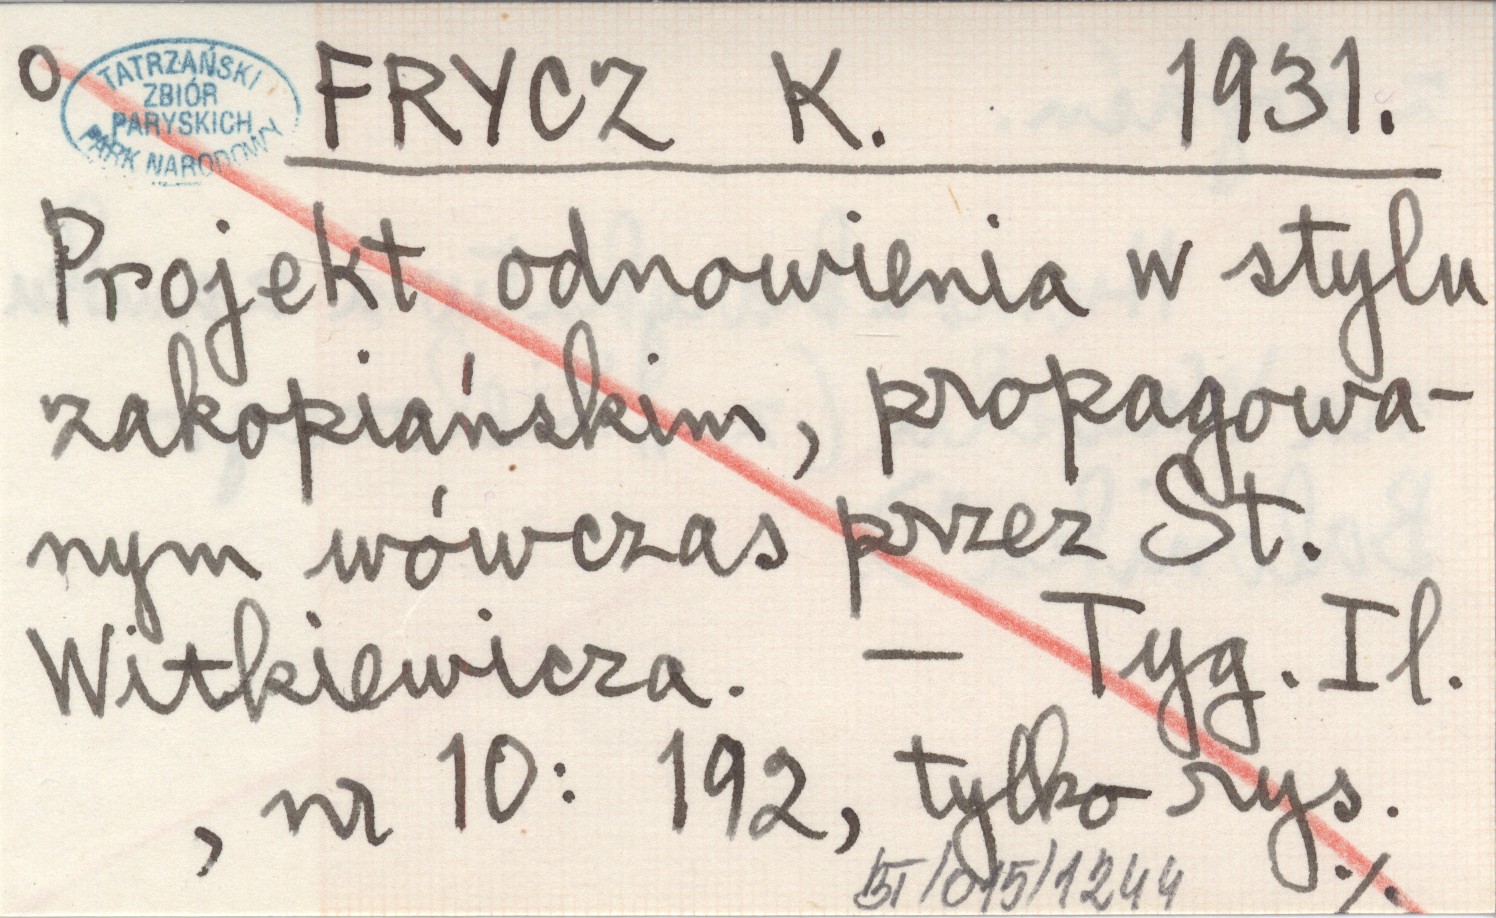 o
TATRZAŃSKI
ZBIÓR
PARYSKICH
PARK NARODOWY
FRYCZ K. 1931.
Projekt odnowienia w stylu
zakopiańskim, propagowa-
nym wówczas przez St.
Witkiewicza. — Tyg. Il.
, nr 10: 192, tylko rys.
BT/015/1244
./.